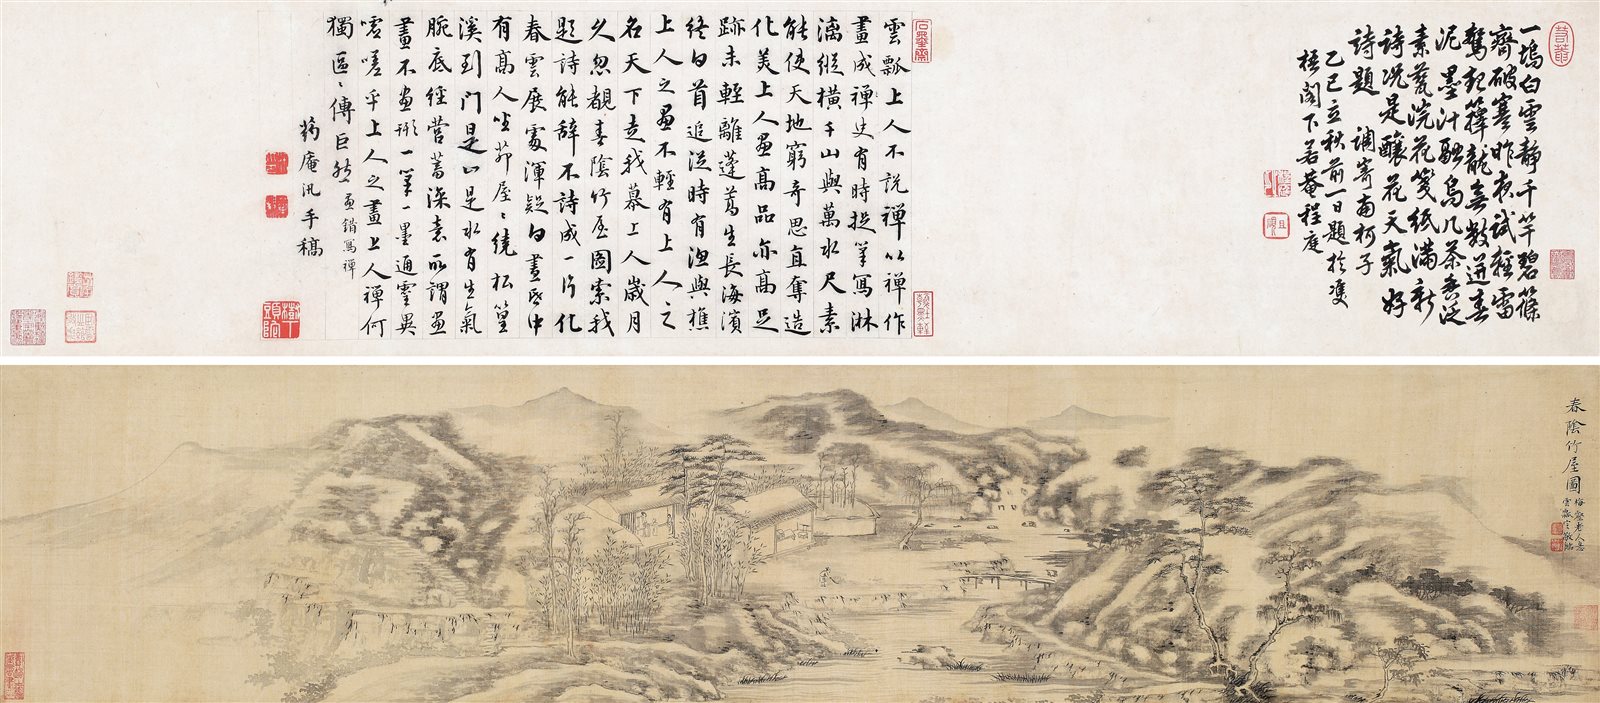 一塢白雲靜千竿碧篠
齊破寒昨夜試輕雷
驚起籜龍無數迸春
泥 墨汁翻烏几茶香泛
素甆浣花箋紙滿新
詩況是釀花天氣好
詩題 調寄南柯子
乙巳立秋前一日題於雙
梧閣下若菴程庭
雲瓢上人不說禪以禪作
畫成禪史有時捉筆寫淋
漓縱橫千山與萬水尺素
能使天地窮奇思直奪造
化美上人畫高品亦高足
跡未輕離蓬蔦生長海濱
終白首追從時有漁與樵
上人之畫不輕有上人之
名天下走我慕上人歲月
久忽覩春陰竹屋圖索我
題詩能辭不詩成一片化
春雲展處渾疑白晝昏中
有高人坐茆屋屋繞松篁
溪到門是山是水有生氣
腕底經營蓄深意所謂畫
畫不畫形一筆一墨通靈異
吁嗟乎上人之畫上人禪何
獨區區傳巨然
畫錯寫禪
汎手稿
樹下
頭陀
春陰竹屋圖